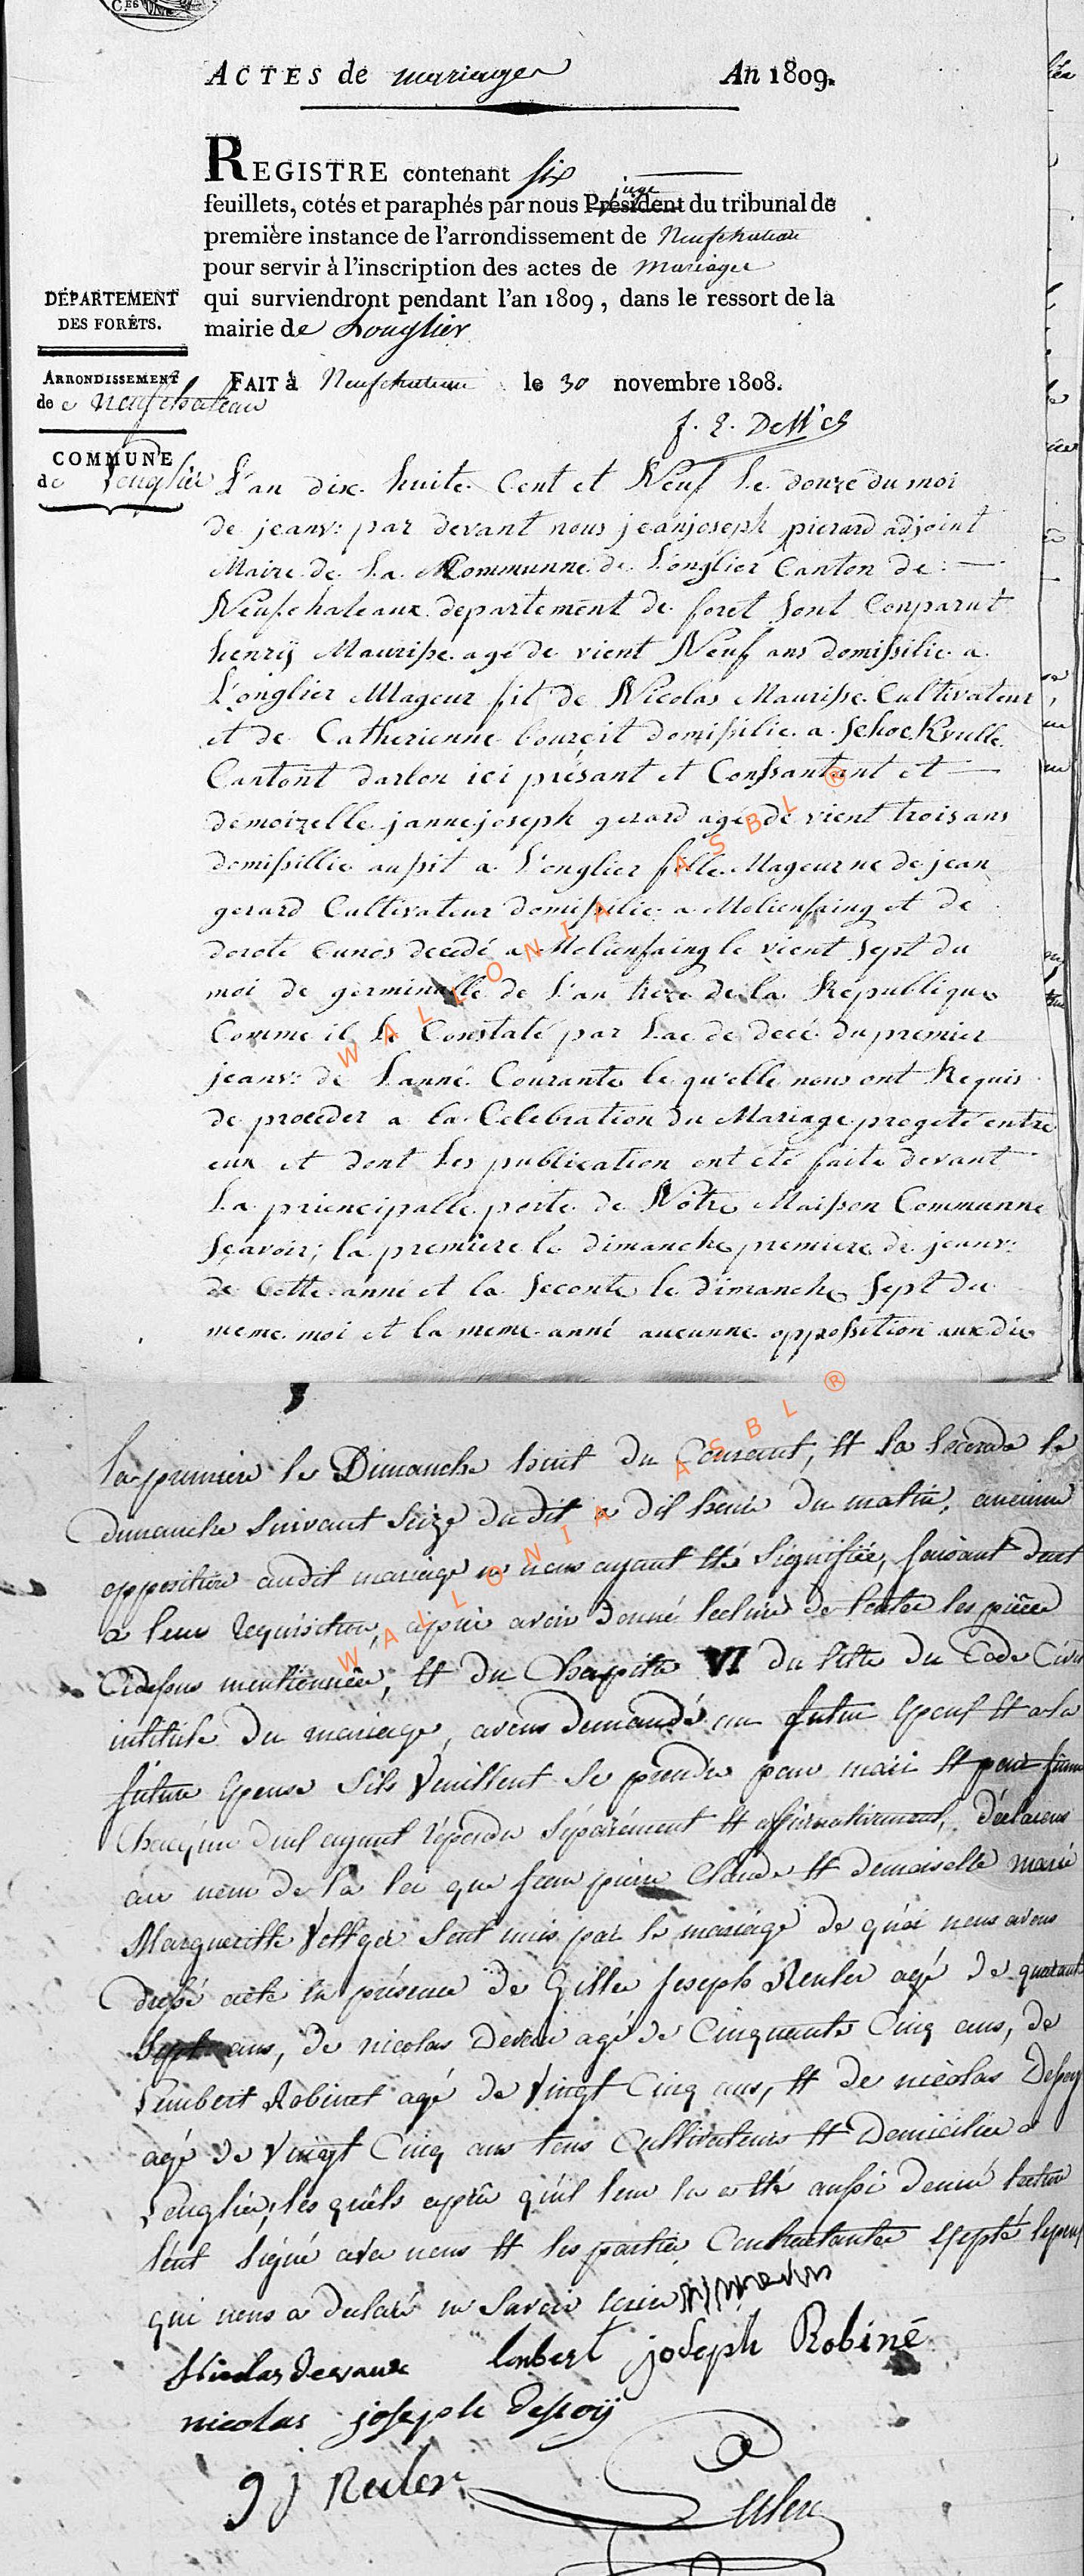 ACTES de mariages An 1809.
REGISTRE contenant six
juge
feuillets, cotés et paraphés par nous Président du tribunal de
première instance de l'arrondissement de Neufchateau
pour servir à l'inscription des actes de mariages
DÉPARTEMENT
DES FORÊTS.
qui surviendront pendant l'an 1809, dans le ressort de la
mairie de Longlier
ARRONDISSEMENT
de Neufchateau
FAIT à Neufchateau le 30 novembre 1808.
COMMUNE
de Longlier
L'an dix huite Cent et Neuf le douze du moi
de jeanv: par devant nous jeanjoseph pierard adjoint
Maire de La Communne de Longlier Canton de
Neufchateaux departement de foret sont Conparut
henrij Maurisse agé de vient Neuf ans domissilie a
L'onglier Mageur fil de Nicolas Maurisse Cultivateur
et de Catherienne bourgit domissilie a Schockville
Cantont darlon ici présant et Consantant et
demoizelle jannejoseph gerard agé de vient trois ans
domissillie aussit a L'onglier fille Mageurne de jean
gerard Cultivateur domissilie a Molienfaing et de
doroté Cunes decedé a Molienfaing le vient sept du
moi de germinalle de L'an treze de la Republique
Comme il le Constaté par Lac de decé du premier
jeanv: de Lanné Courante le qu'elle nous ont Requis
de proceder a la Celebration du Mariage progeté entre
eux et dont les publication ont été faite devant
La priencipalle porte de Notre Maisson Communne
Sçavoir; la premiere le dimanche premiere de jeanv:
de Cette anné et la seconte le dimanche sept du
meme moi et la meme anné aucunne oppossition aux dis
la premiere le Dimanche huit du Courant, et la seconde le
dimanche suivant seize du dit a dit heure du matin, aucune
opposition audit mariage ne nous ayant été signifiée, faisant droit
a leur requisition, apprè avoir donné lecture de toutes les pièces
Cidessus mentionnées, et du Chapitre VI du titre du Code Civil
intitulé du mariage, avons demandé au futur Epoux et a la
future Epouse s'ils veuillent se prendre pour mari et pour femme
Chacqune d'eux ayant répondu séparément et affirmativement, déclarons
au nom de la loi que jean pierre Claude et demoiselle marie
Margueritte sont unis par le mariage de quoi nous avons
dressé acte en présence de Gille Joseph Reuler agé de quarante
Sept ans, de nicolas Devau agé de Cinquante Cinq ans, de
Lembert Robinet agé de Vingt Cinq ans, et de nicolas Dessoy
agé de Vingt Cinq ans tous Cultivateurs et Domiciliés a
Longlier, les quels après qu'il leur en a été aussi donné lecture
l'ont signé avec nous et les parties Contractantes Exepté lepoux
qui nous a déclaré ne savoir ecrire
Nicolas devaux lenbert joseph Robiné
nicolas joseph dessoij
g j Reuler